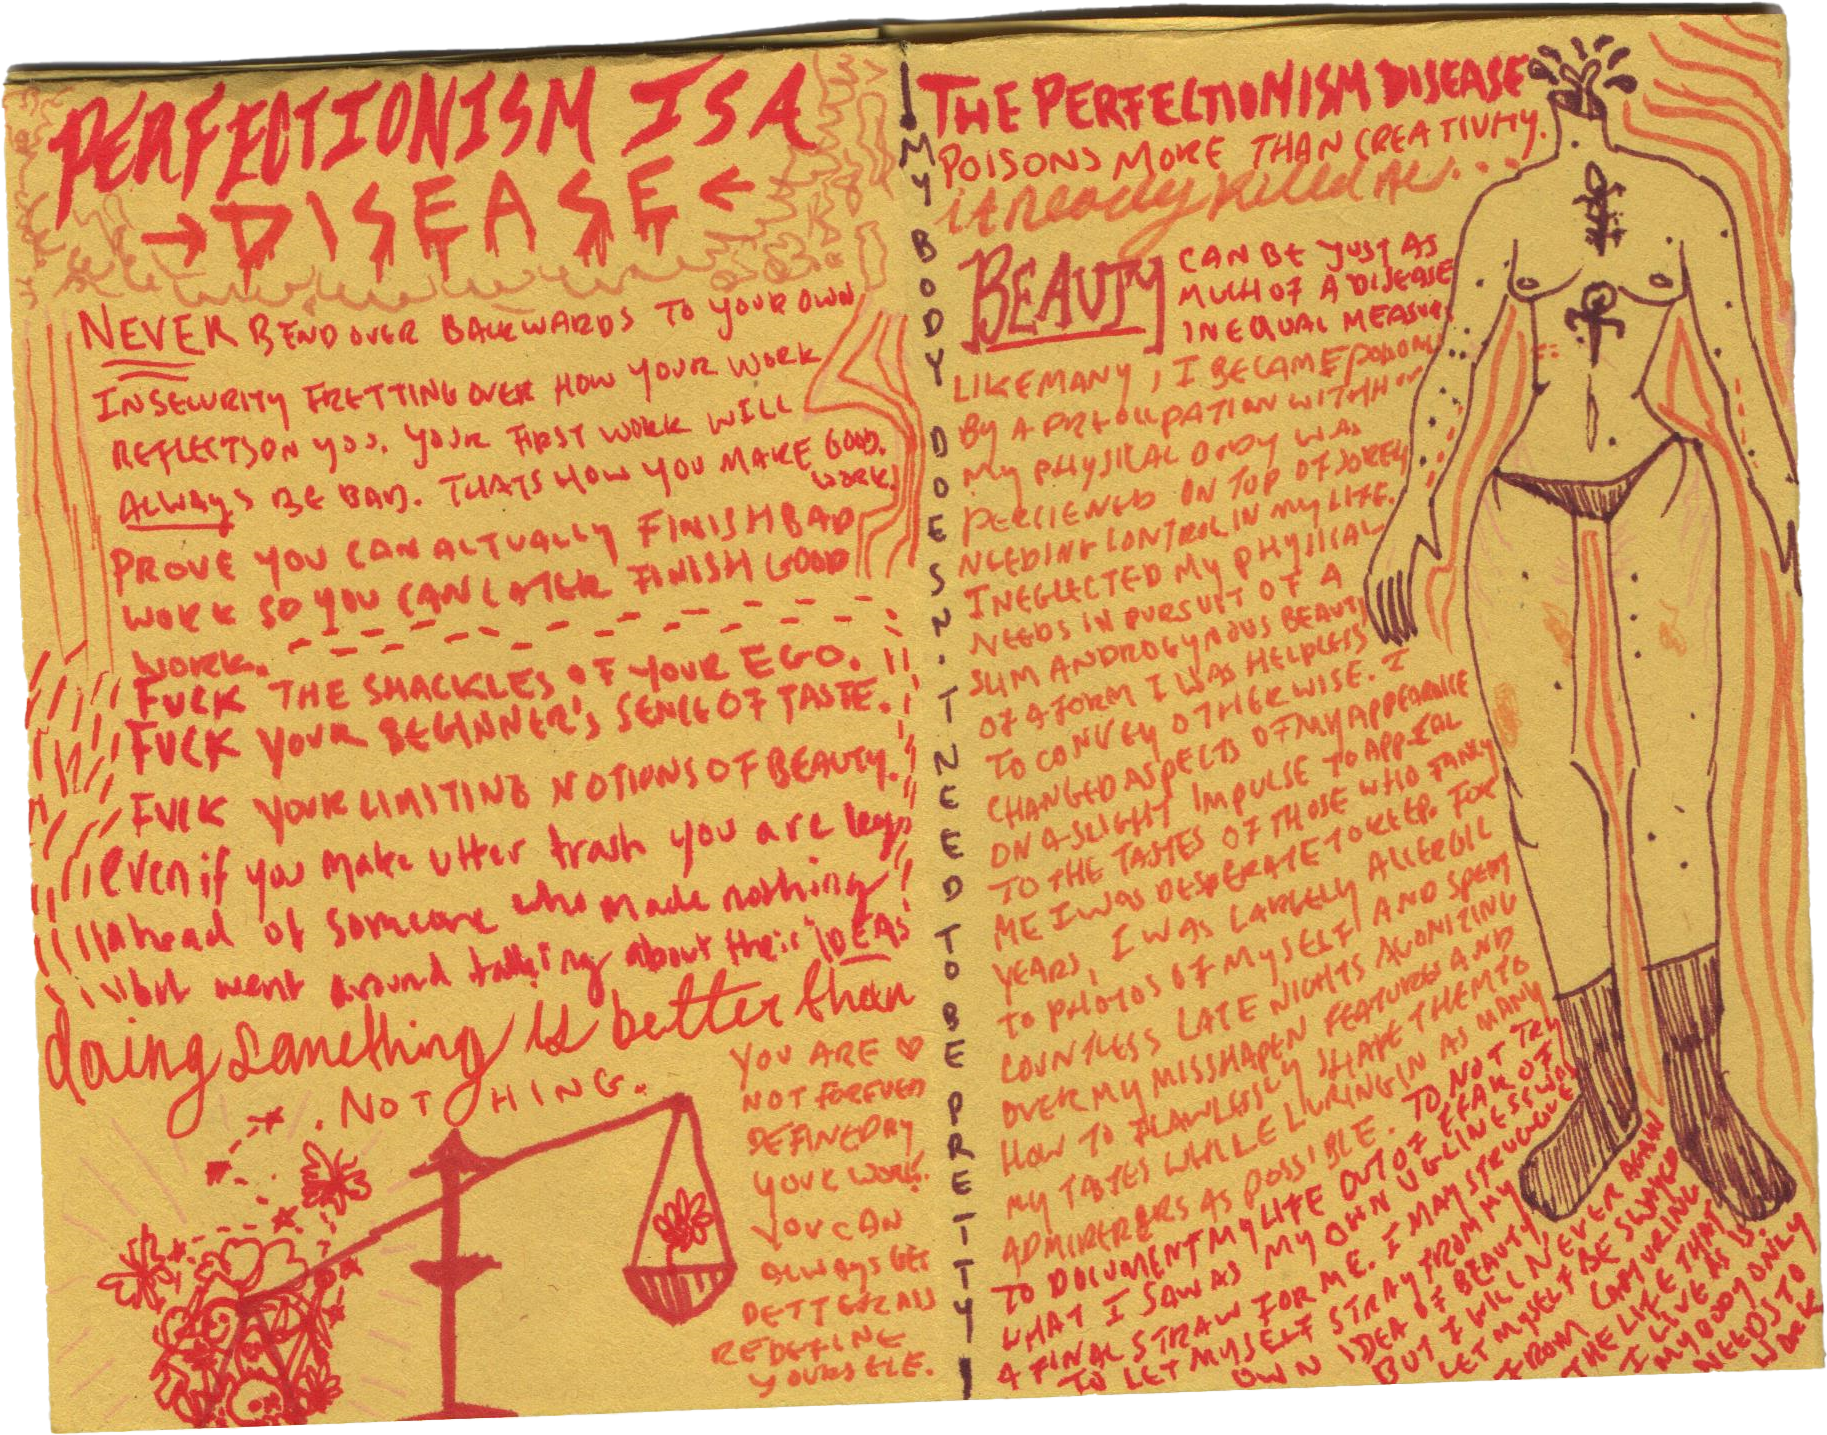 PERFECTIONISM IS A
→DISEASE←
NEVER BEND OVER BACKWARDS TO YOUR OWN
INSECURITY FRETTING OVER HOW YOUR WORK
REFLECTS ON YOU. YOUR FIRST WORK WILL
ALWAYS BE BAD. THATS HOW YOU MAKE GOOD.
WORK!
PROVE YOU CAN ACTUALLY FINISH BAD
WORK SO YOU CAN LATER FINISH GOOD
WORK.
FUCK THE SHACKLES OF YOUR EGO.
FUCK YOUR BEGINNER'S SENCE OF TASTE.
FUCK YOUR LIMITING NOTIONS OF BEAUTY.
even if you make utter trash you are
ahead of someone who made nothing
but went around talking about their IDEAS
doing something is better than
NOTHING.
YOU ARE ♥
NOT FOREVER
DEFINED BY
YOUR WORK.
YOU CAN
ALWAYS GET
BETTER AND
REDEFINE
YOURSELF.
MY BODY DOESN'T NEED TO BE PRETTY!
THE PERFECTIONISM DISEASE
POISONS MORE THAN CREATIVITY.
it nearly killed me...
BEAUTY
CAN BE JUST AS
MUCH OF A DISEASE
IN EQUAL MEASURE
LIKE MANY, I BECAME
BY A PREOCCUPATION WITH HOW
MY PHYSICAL BODY WAS
PERCIEVED ON TOP OF SORELY
NEEDING CONTROL IN MY LIFE.
I NEGLECTED MY PHYSICAL
NEEDS IN PURSUIT OF A
SLIM ANDROGYNOUS BEAUTY
OF A FORM I WAS HELPLESS
TO CONVEY OTHERWISE. I
CHANGED ASPECTS OF MY APPEARANCE
ON A SLIGHT IMPULSE TO APPEAL
TO THE TASTES OF THOSE WHO FANCY
ME I WAS DESPERATE TO KEEP. FOR
YEARS, I WAS LARGELY ALLERGIC
TO PHOTOS OF MYSELF AND SPENT
COUNTLESS LATE NIGHTS AGONIZING
OVER MY MISSHAPEN FEATURES AND
HOW TO FLAWLESSLY SHAPE THEM TO
MY TASTES WHILE LURING IN AS MANY
ADMIRERERS AS POSSIBLE. TO NOT TRY
TO DOCUMENT MY LIFE OUT OF FEAR OF
WHAT I SAW AS MY OWN UGLINESS WAS
A FINAL STRAW FOR ME. I MAY STRUGGLE
TO LET MYSELF STRAY FROM MY
OWN IDEA OF BEAUTY,
BUT I WILL NEVER AGAIN
LET MYSELF BE SWAYED
FROM CAPTURING
THE LIFE THAT
I LIVE AS IS.
MY BODY ONLY
NEEDS TO
WORK